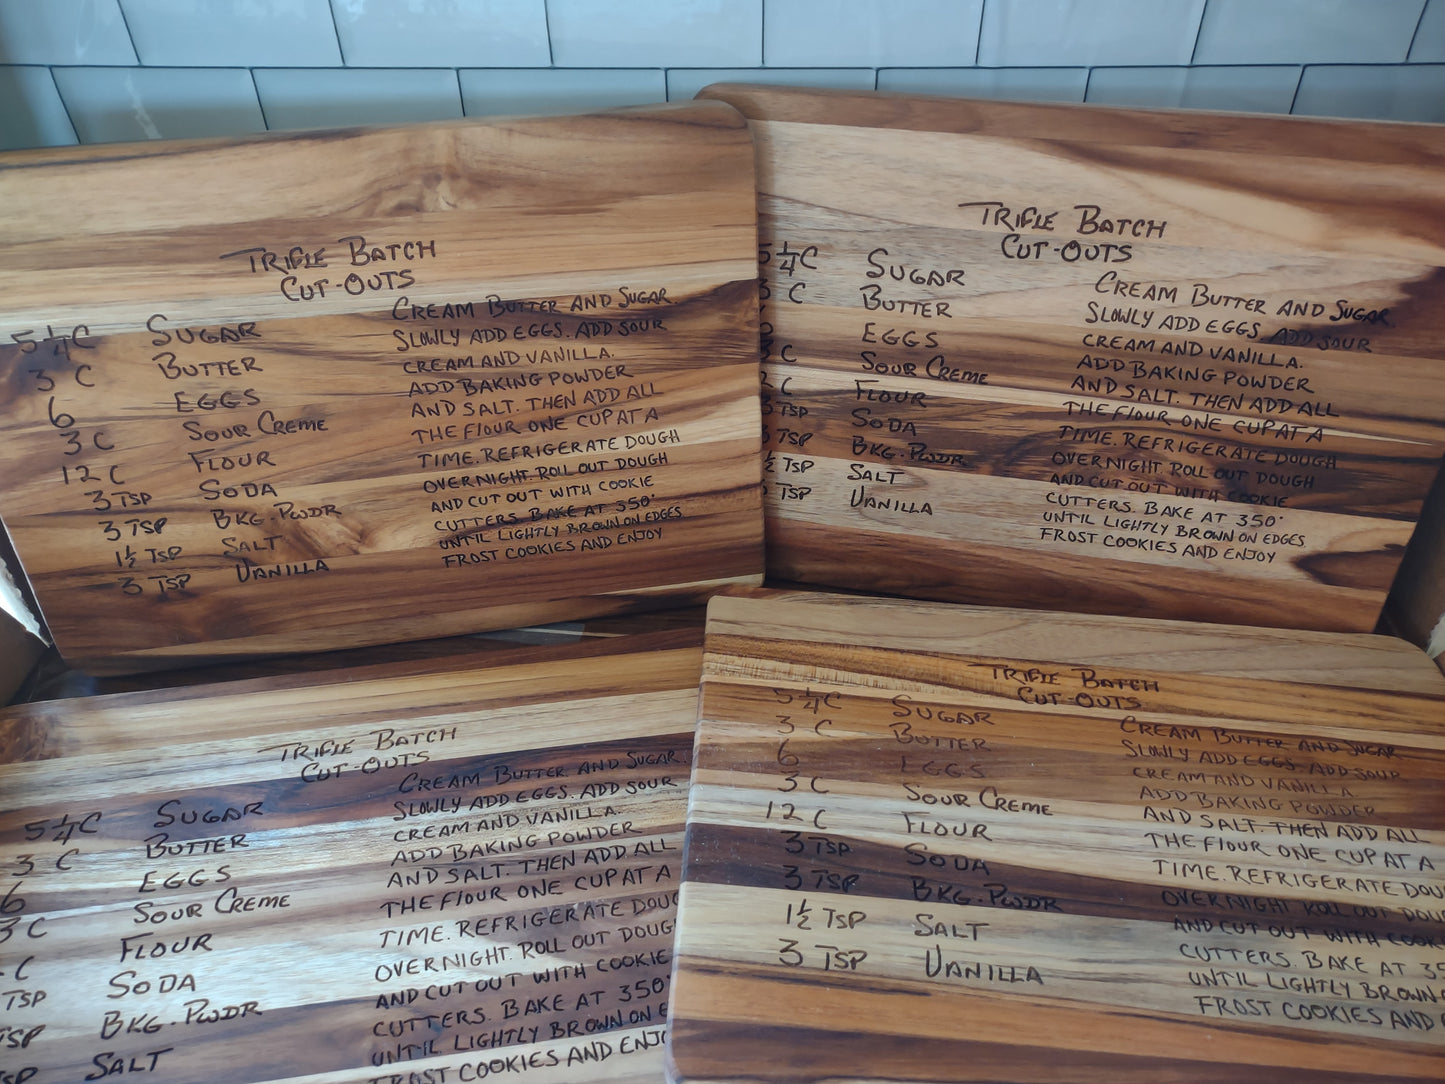 TRIFLE BATCH
CUT-OUTS
5 1/4 C SUGAR
3 C BUTTER
6 EGGS
3 C SOUR CREME
12 C FLOUR
3 TSP SODA
3 TSP BKG. PWDR
1 1/2 TSP SALT
3 TSP VANILLA
CREAM BUTTER AND SUGAR.
SLOWLY ADD EGGS. ADD SOUR
CREAM AND VANILLA.
ADD BAKING POWDER
AND SALT. THEN ADD ALL
THE FLOUR ONE CUP AT A
TIME. REFRIGERATE DOUGH
OVERNIGHT. ROLL OUT DOUGH
AND CUT OUT WITH COOKIE
CUTTERS. BAKE AT 350°
UNTIL LIGHTLY BROWN ON EDGES
FROST COOKIES AND ENJOY
TRIFLE BATCH
CUT-OUTS
5 1/4 C SUGAR
3 C BUTTER
EGGS
3 C SOUR CREME
2 C FLOUR
TSP SODA
TSP BKG. PWDR
1/2 TSP SALT
TSP VANILLA
CREAM BUTTER AND SUGAR.
SLOWLY ADD EGGS. ADD SOUR
CREAM AND VANILLA.
ADD BAKING POWDER
AND SALT. THEN ADD ALL
THE FLOUR ONE CUP AT A
TIME. REFRIGERATE DOUGH
OVERNIGHT. ROLL OUT DOUGH
AND CUT OUT WITH COOKIE
CUTTERS. BAKE AT 350°
UNTIL LIGHTLY BROWN ON EDGES
FROST COOKIES AND ENJOY
TRIFLE BATCH
CUT-OUTS
5 1/4 C SUGAR
3 C BUTTER
6 EGGS
3 C SOUR CREME
C FLOUR
TSP SODA
TSP BKG. PWDR
SALT
CREAM BUTTER AND SUGAR.
SLOWLY ADD EGGS. ADD SOUR
CREAM AND VANILLA.
ADD BAKING POWDER
AND SALT. THEN ADD ALL
THE FLOUR ONE CUP AT A
TIME. REFRIGERATE DOUG
OVERNIGHT. ROLL OUT DOUG
AND CUT OUT WITH COOKIE
CUTTERS. BAKE AT 350°
UNTIL LIGHTLY BROWN ON E
FROST COOKIES AND ENJO
TRIFLE BATCH
CUT-OUTS
5 1/4 C SUGAR
3 C BUTTER
6 EGGS
3 C SOUR CREME
12 C FLOUR
3 TSP SODA
3 TSP BKG. PWDR
1 1/2 TSP SALT
3 TSP VANILLA
CREAM BUTTER AND SUGAR
SLOWLY ADD EGGS. ADD SOUR
CREAM AND VANILLA
ADD BAKING POWDER
AND SALT. THEN ADD ALL
THE FLOUR ONE CUP AT A
TIME. REFRIGERATE DOU
OVERNIGHT. ROLL OUT DOU
AND CUT OUT WITH COOK
CUTTERS. BAKE AT 35
UNTIL LIGHTLY BROWN
FROST COOKIES AND